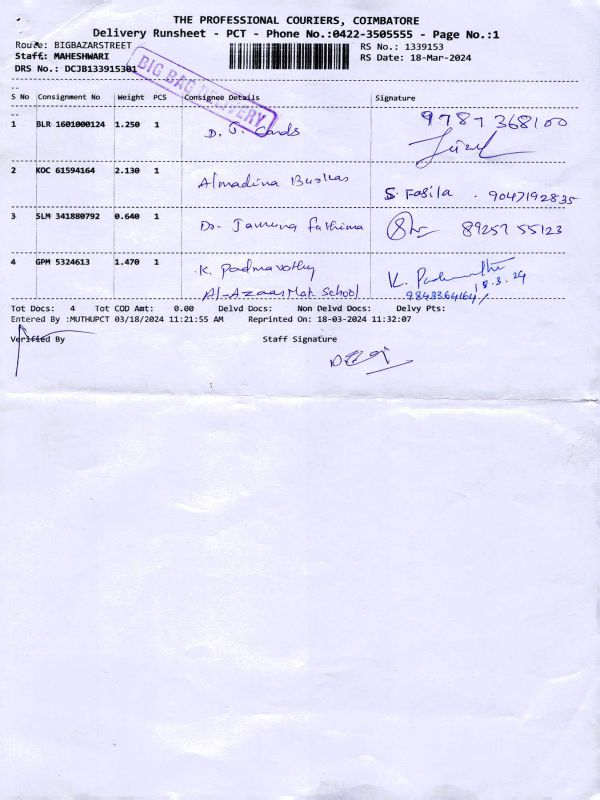 THE PROFESSIONAL COURIERS, COIMBATORE
Delivery Runsheet - PCT - Phone No.:0422-3505555 - Page No.:1
Route: BIGBAZARSTREET
RS No.: 1339153
Staff: MAHESHWARI
RS Date: 18-Mar-2024
DRS No.: DCJB133915301
BIG BAG DELIVERY
S No Consignment No Weight PCS Consignee Details Signature
1 BLR 1601000124 1.250 1 D. J. Cards 9787368100
2 KOC 61594164 2.130 1 Almadina S. Fasila . 9047192835
3 SLM 341880792 0.640 1 Dr. Jamuna fathima 89257 55123
4 GPM 5324613 1.470 1 K. Padmavathy K. 18.3.24
Al-Azaar Mat School 9843364164
Tot Docs: 4 Tot COD Amt: 0.00 Delvd Docs: Non Delvd Docs: Delvy Pts:
Entered By :MUTHUPCT 03/18/2024 11:21:55 AM Reprinted On: 18-03-2024 11:32:07
Verified By Staff Signature